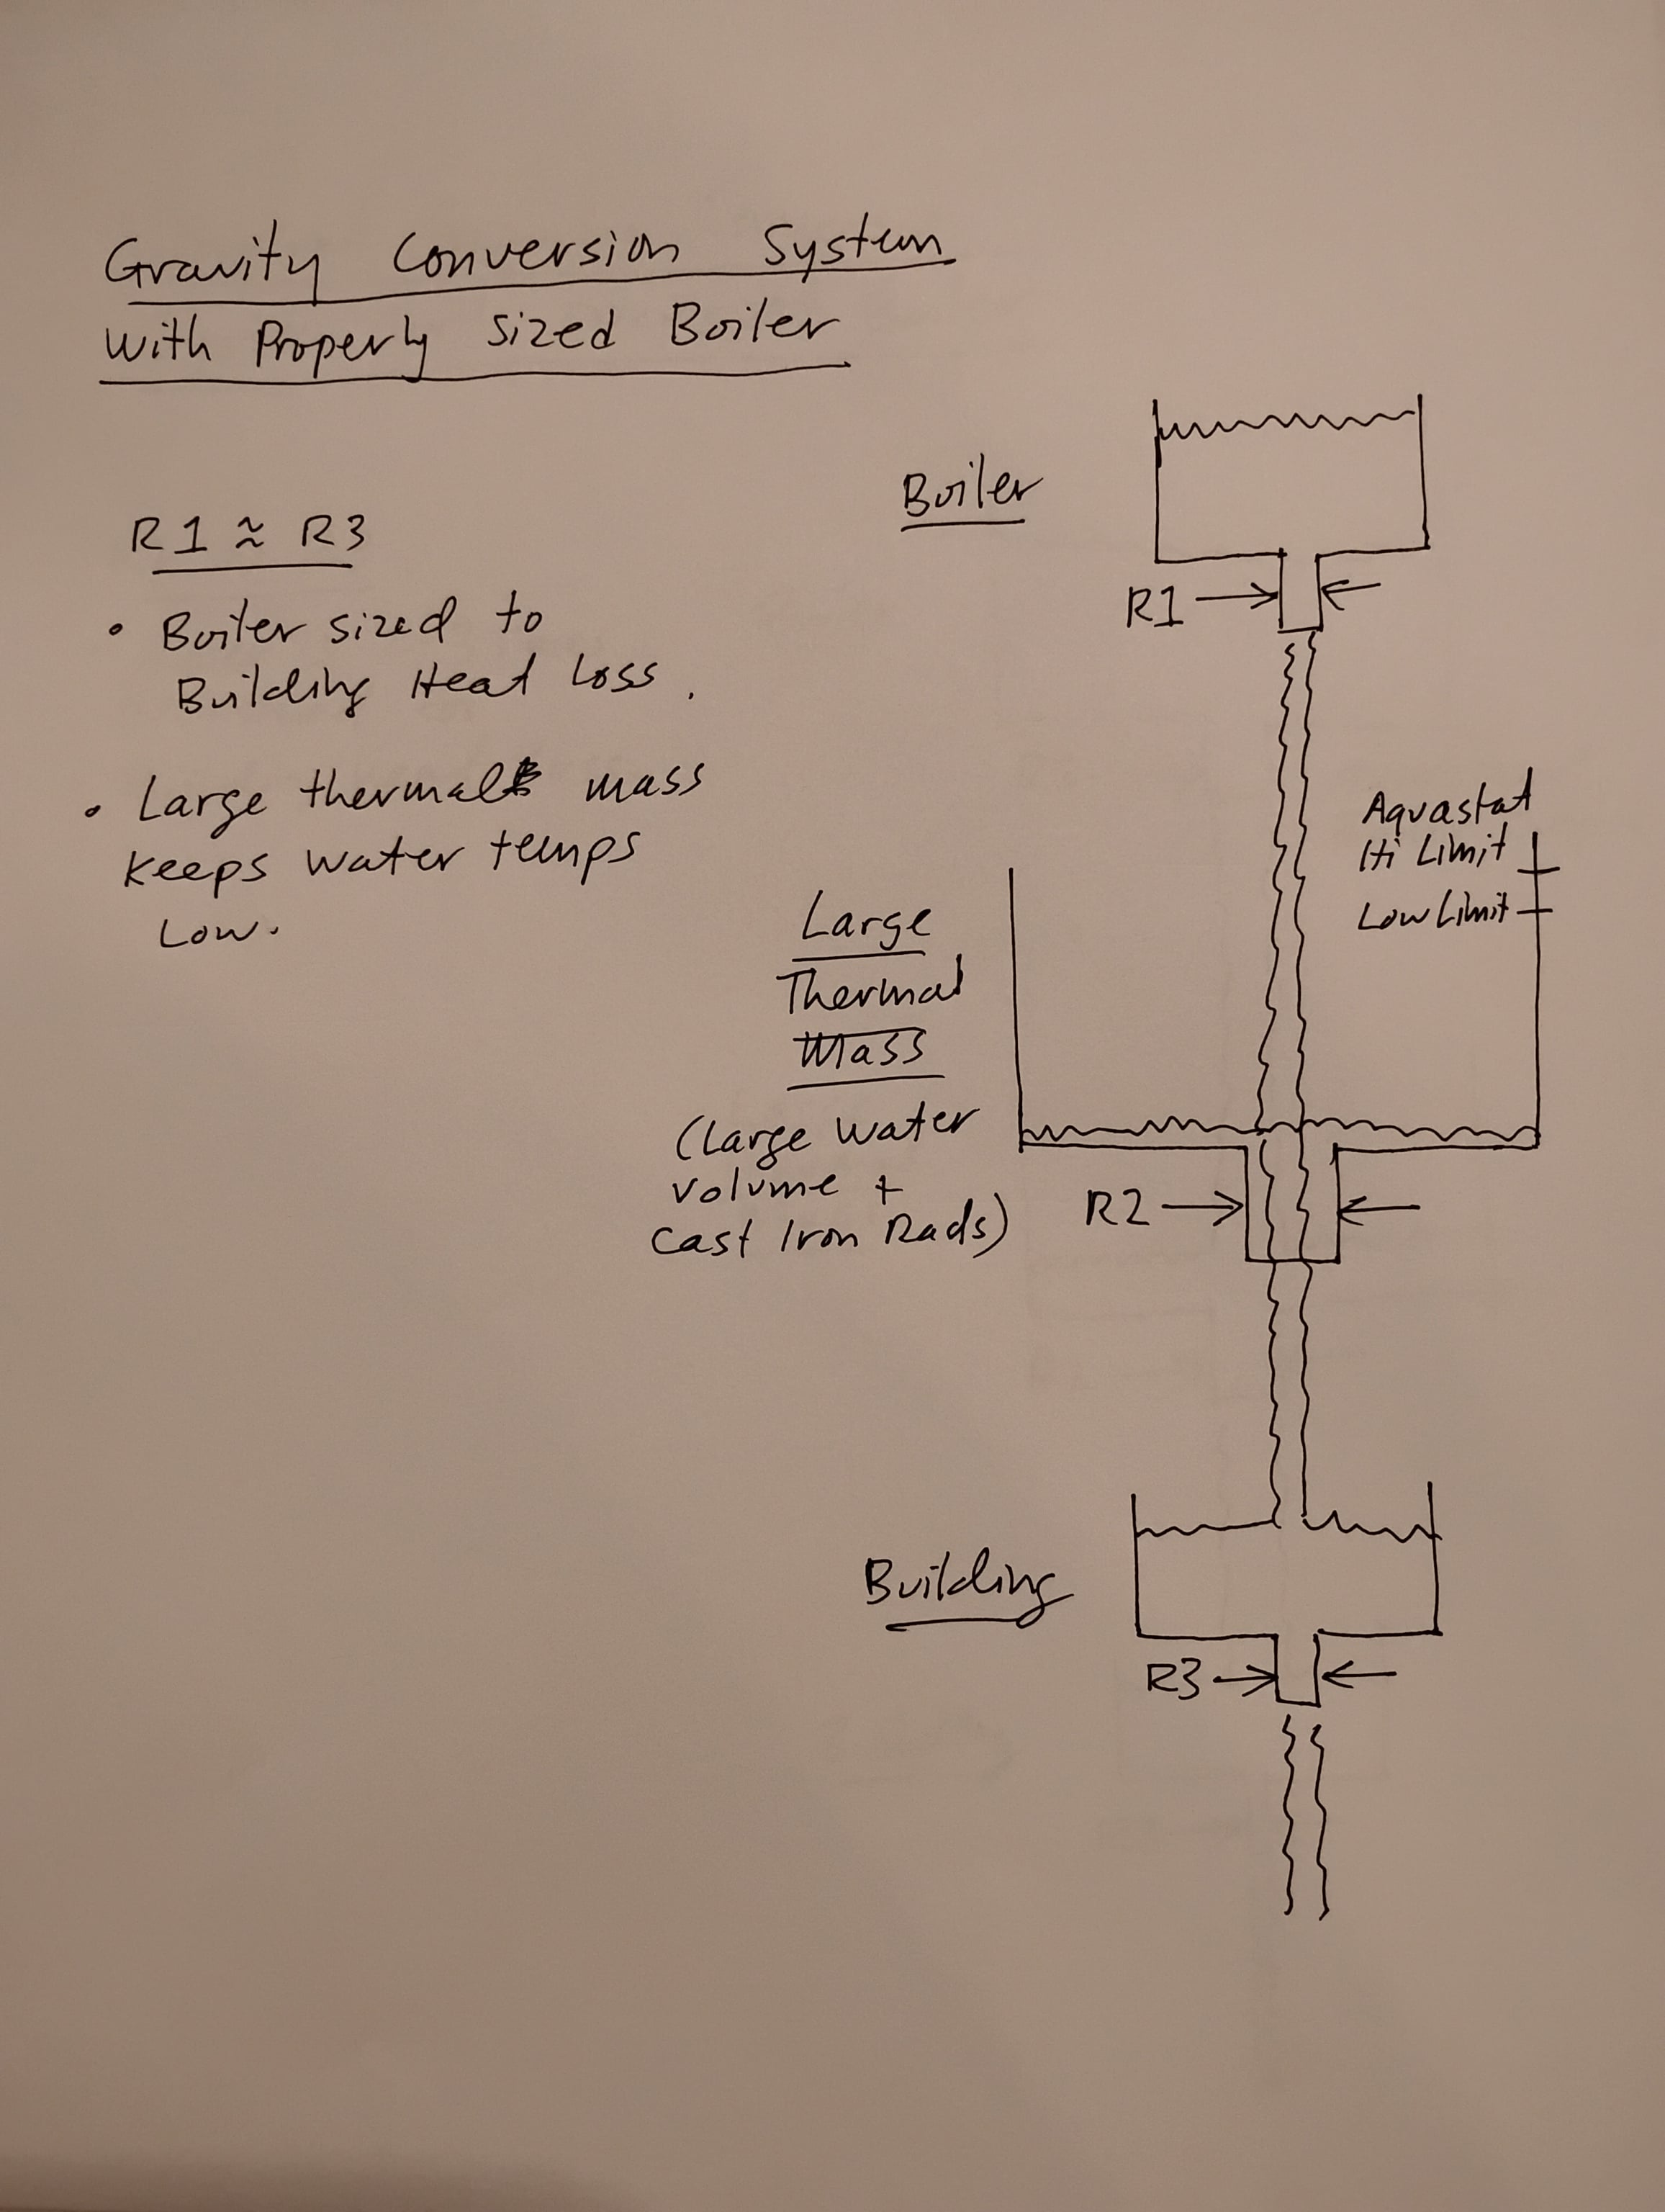 Gravity Conversion System
with Properly Sized Boiler
R1 ≈ R3
• Boiler sized to
Building Heat Loss.
• Large thermal mass
keeps water temps
Low.
Boiler
R1
Aquastat
Hi Limit
Low Limit
Large
Thermal
Mass
(Large water
volume +
Cast Iron Rads)
R2
Building
R3